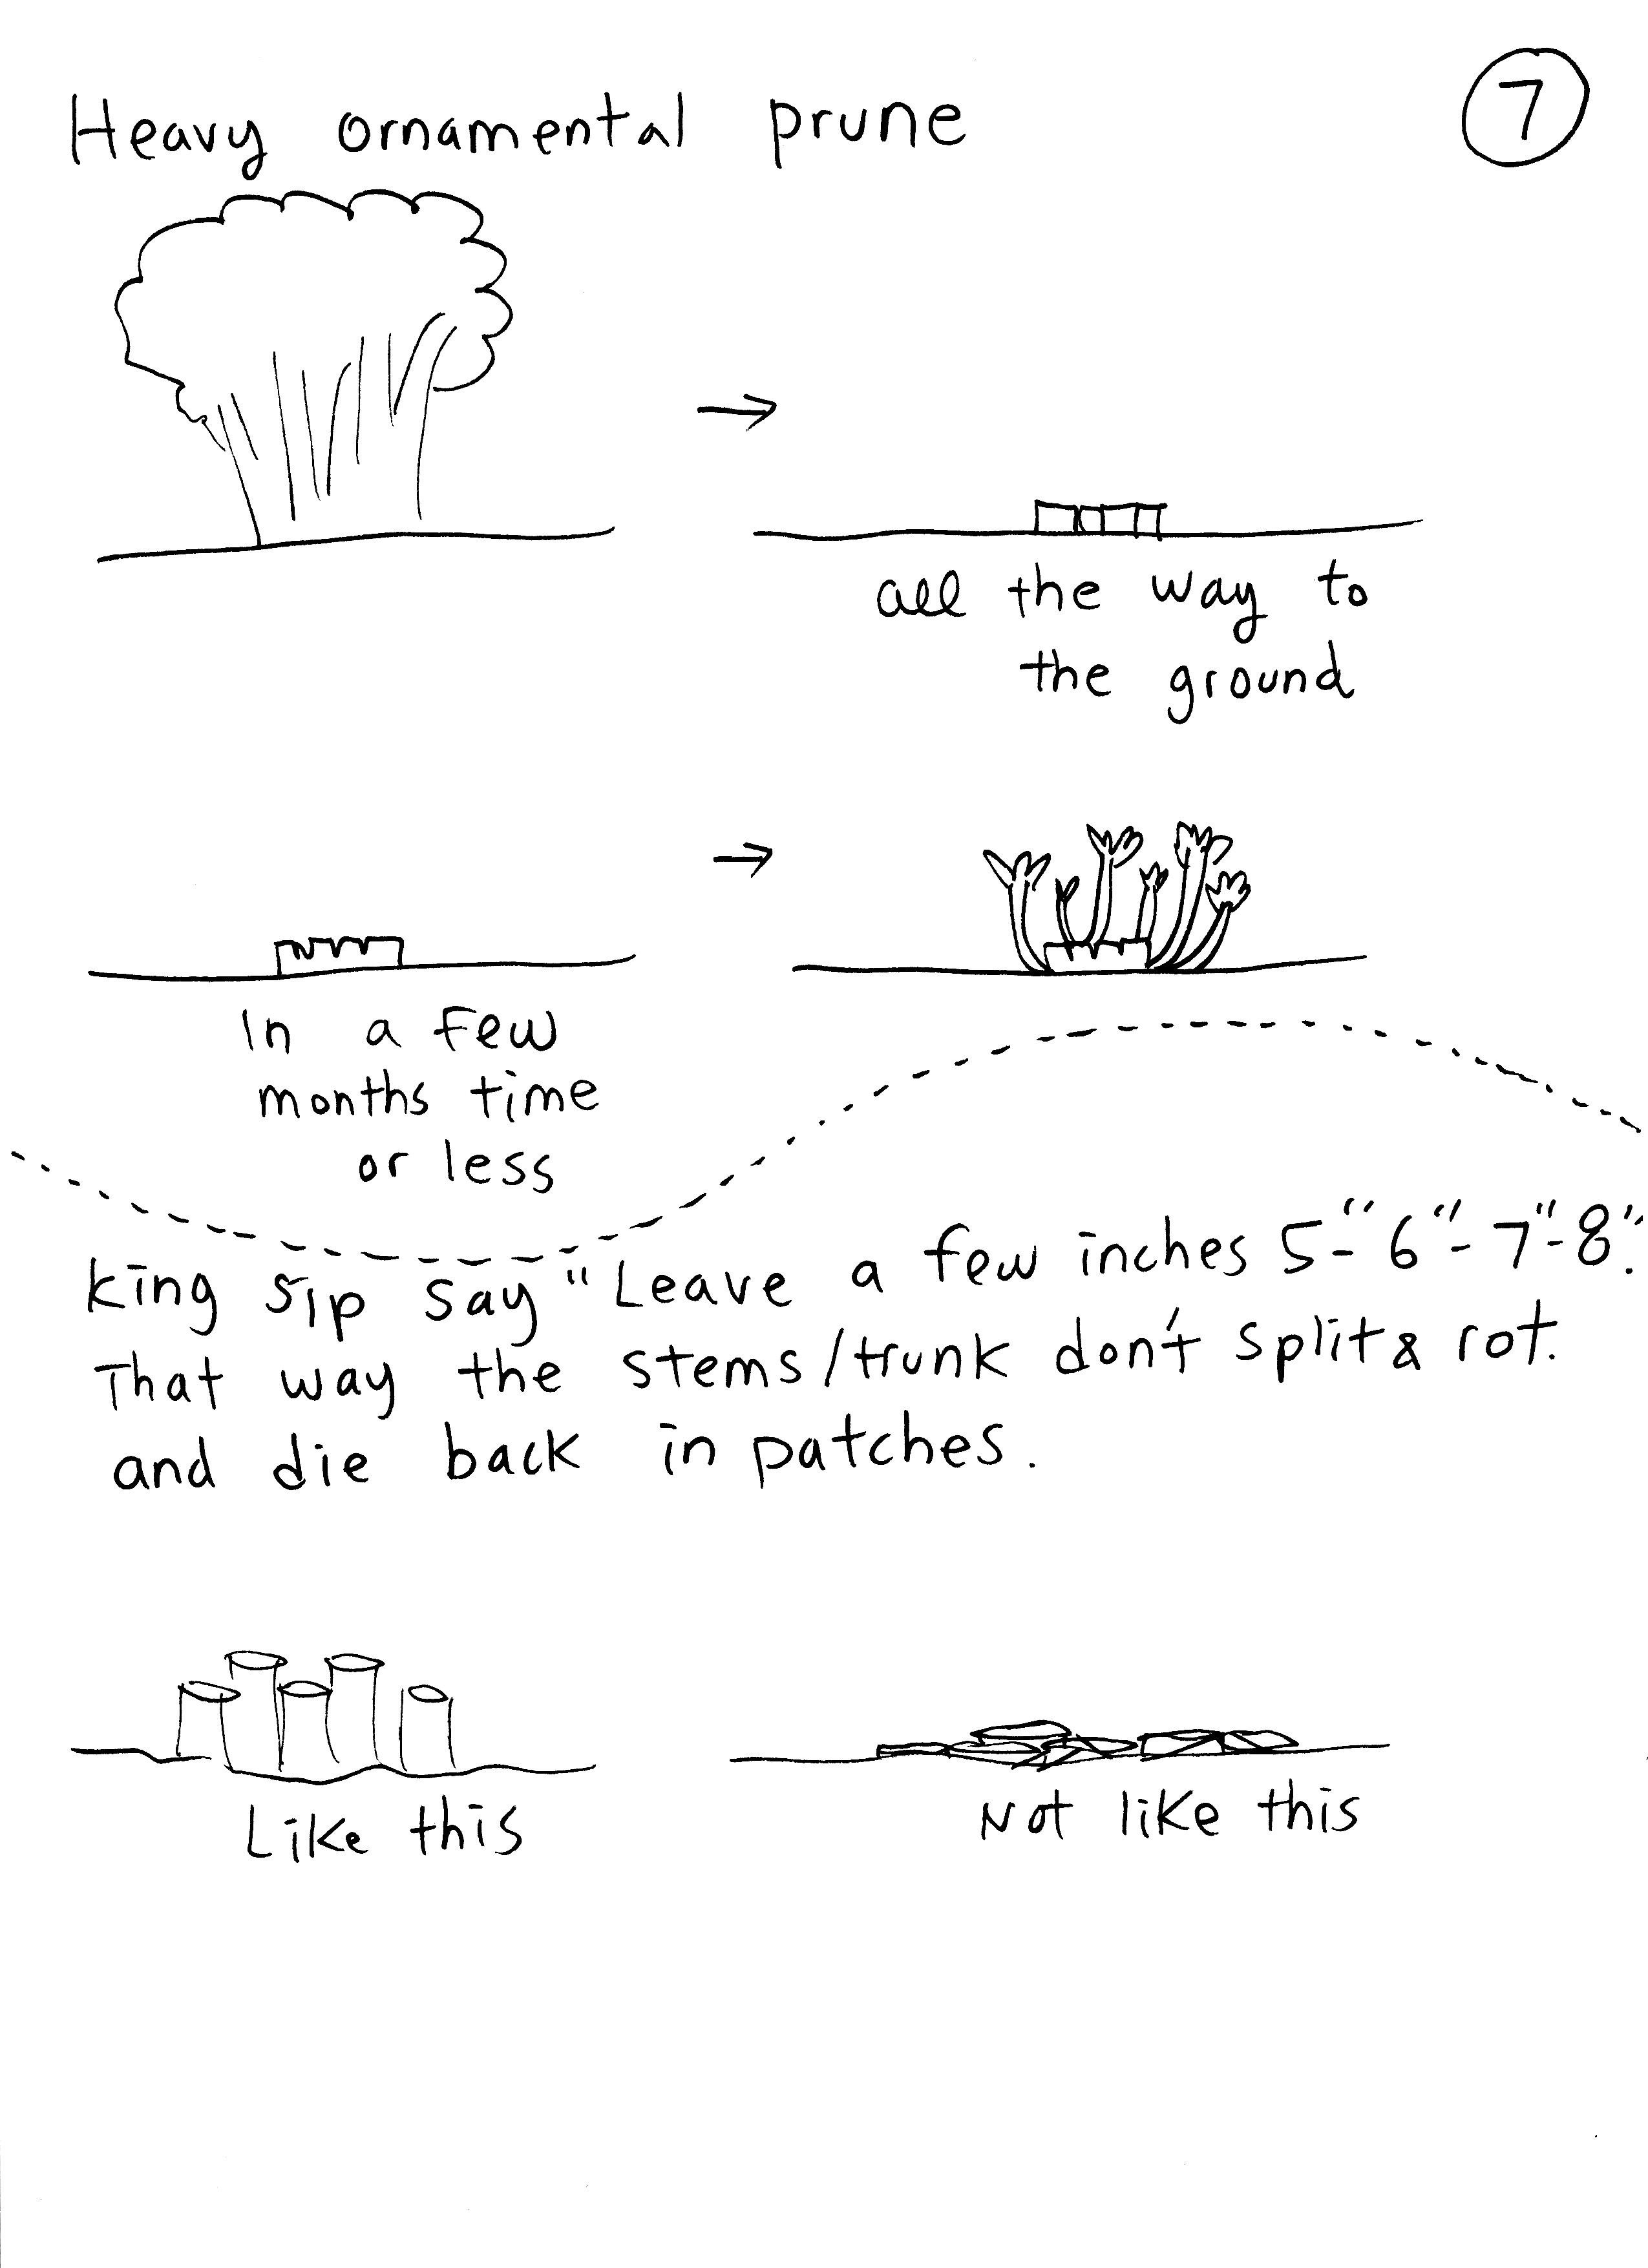 Heavy ornamental prune
7
all the way to
the ground
In a few
months time
or less
King Sip say "Leave a few inches 5-"6"-7"-8".
That way the stems/trunk don't split & rot.
and die back in patches.
Like this
Not like this